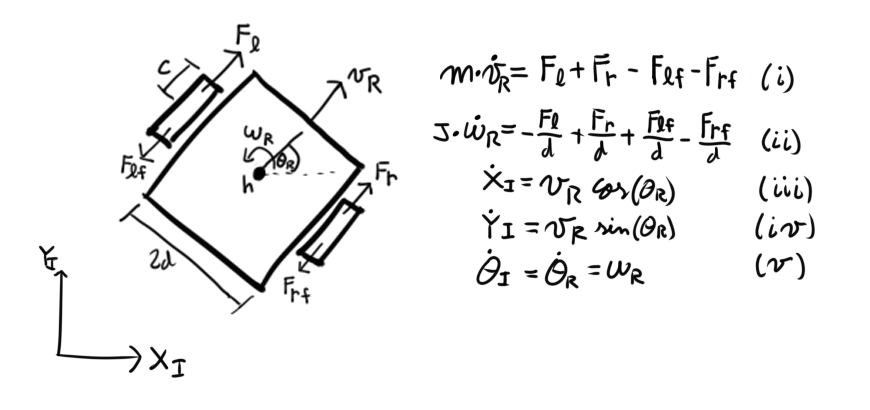 F_l
c
v_R
ω_R
θ_R
F_lf
h
F_r
2d
F_rf
Y_I
X_I
m·v̇_R = F_l + F_r - F_lf - F_rf (i)
J·ω̇_R = -F_l/d + F_r/d + F_lf/d - F_rf/d (ii)
Ẋ_I = v_R cos(θ_R) (iii)
Ẏ_I = v_R sin(θ_R) (iv)
θ̇_I = θ̇_R = ω_R (v)